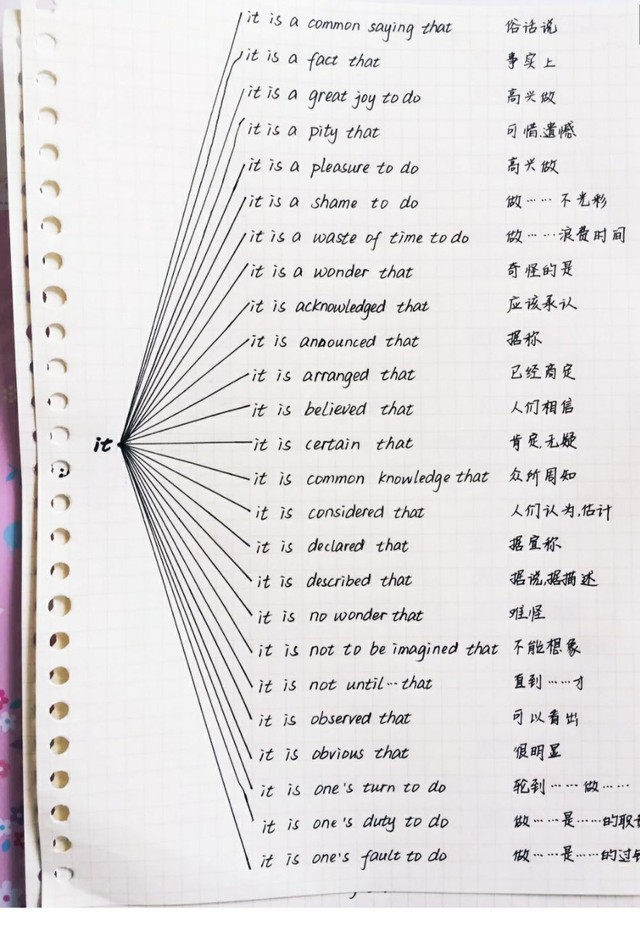 it is a common saying that 俗话说
it is a fact that 事实上
it is a great joy to do 高兴做
it is a pity that 可惜,遗憾
it is a pleasure to do 高兴做
it is a shame to do 做……不光彩
it is a waste of time to do 做……浪费时间
it is a wonder that 奇怪的是
it is acknowledged that 应该承认
it is announced that 据称
it is arranged that 已经商定
it is believed that 人们相信
it it is certain that 肯定,无疑
it is common knowledge that 众所周知
it is considered that 人们认为,估计
it is declared that 据宣称
it is described that 据说,据描述
it is no wonder that 难怪
it is not to be imagined that 不能想象
it is not until…that 直到……才
it is observed that 可以看出
it is obvious that 很明显
it is one's turn to do 轮到……做……
it is one's duty to do 做……是……的职
it is one's fault to do 做……是……的过